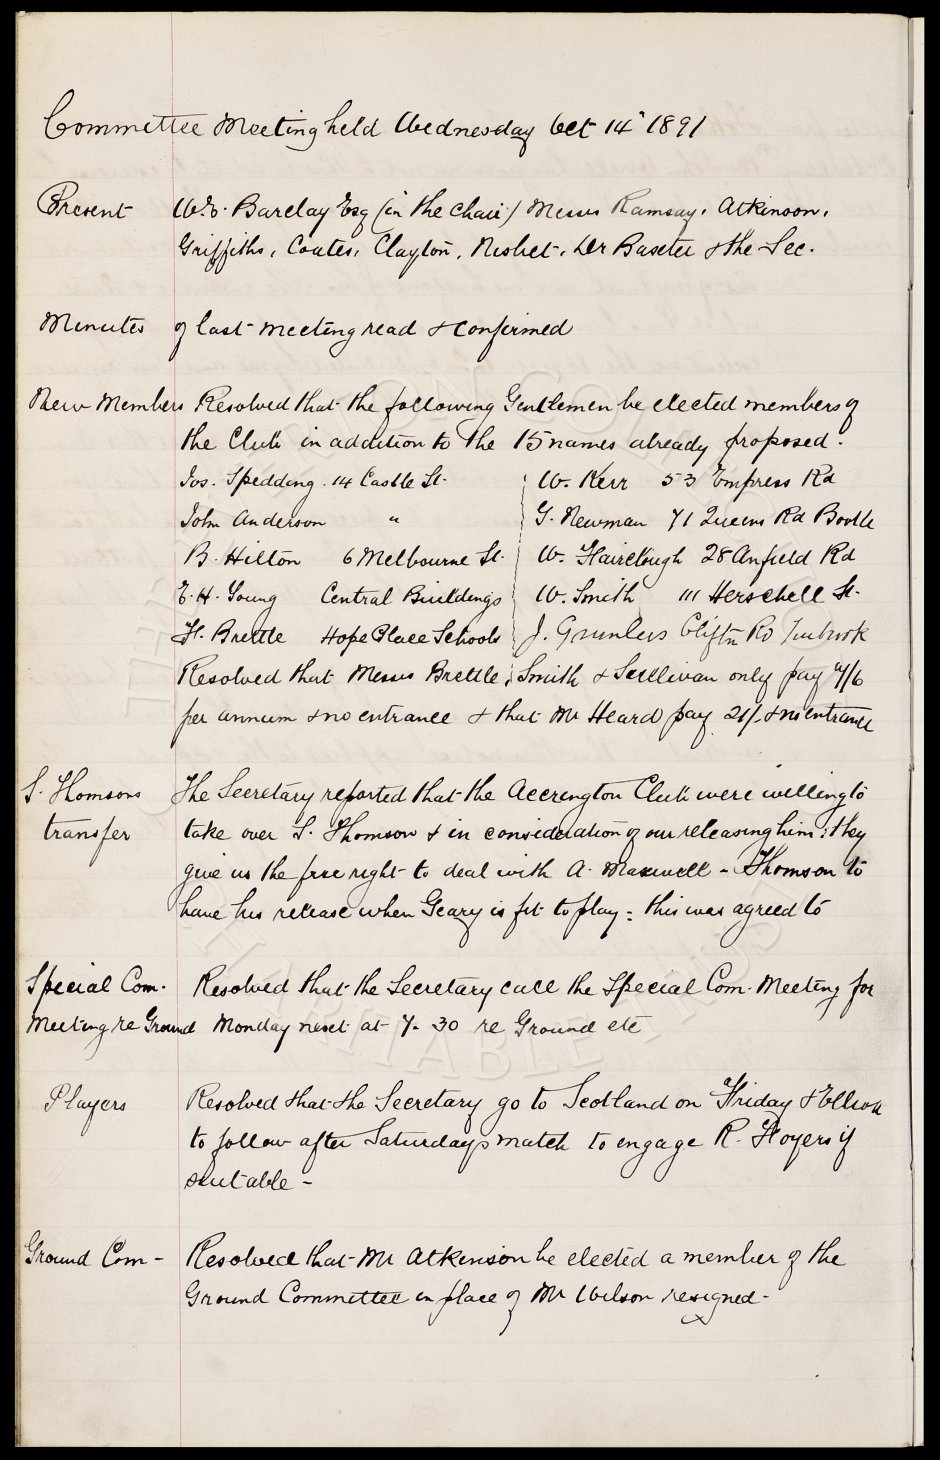 Committee Meeting held Wednesday Oct 14" 1891
Present W.E. Barclay Esq (in the Chair) Messrs Ramsay, Atkinson,
Griffiths, Coates, Clayton, Nisbet, Dr Baxter & the Sec.
Minutes of last meeting read & confirmed
New Members Resolved that the following Gentlemen be elected members of
the Club in addition to the 15 names already proposed.
Jos. Spedding. 14 Castle St. W. Kerr 53 Empress Rd
John Anderson " G. Newman 71 Queens Rd Bootle
B. Hilton 6 Melbourne St. W. Fairclough 28 Anfield Rd
E.H. Young Central Buildings W. Smith 111 Herschell St.
H. Brettle Hope Place Schools J. Clifton Rd Tuebrook
Resolved that Messrs Brettle, Smith & Sullivan only pay
per annum & no entrance & that Mr Heard pay 21/- & no entrance
S. Thomsons The Secretary reported that the Accrington Club were willing to
transfer take over S. Thomson & in consideration of our releasing him: they
give us the free right to deal with A. Maxwell - Thomson to
have his release when Geary is fit to play: this was agreed to
Special Com. Resolved that the Secretary call the Special Com. Meeting for
Meeting re Ground Monday next at 7-30 re Ground etc
Players Resolved that the Secretary go to Scotland on Friday &
to follow after Saturdays match to engage R. if
suitable -
Ground Com - Resolved that Mr Atkinson be elected a member of the
Ground Committee in place of Mr Wilson resigned -